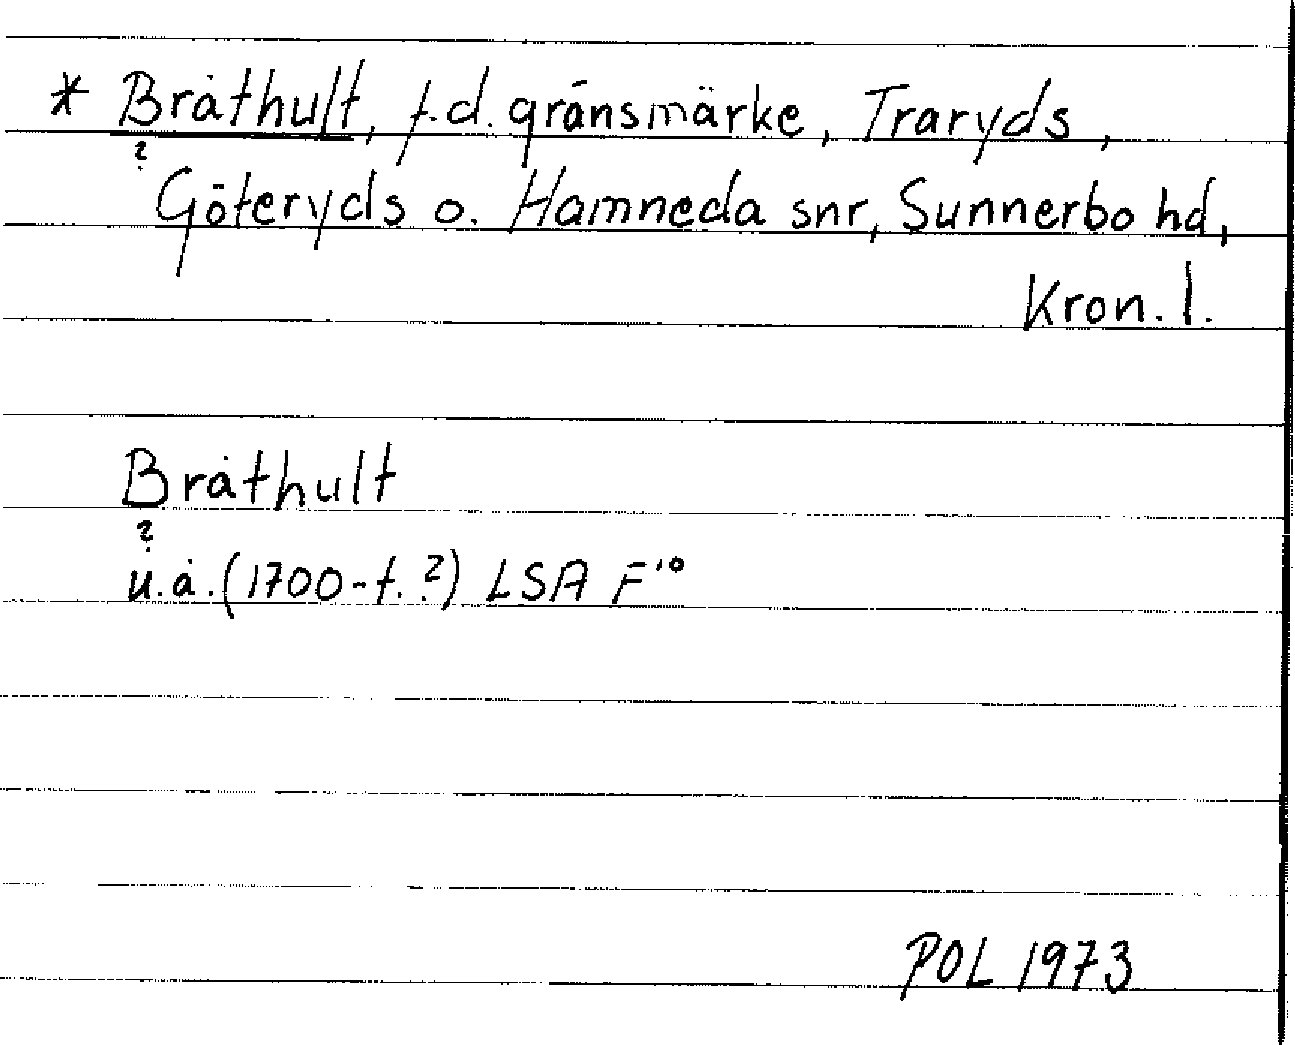 * Bråthult, f.d. gränsmärke, Traryds,
?
Göteryds o. Hamneda snr, Sunnerbo hd,
Kron. l.
Bråthult
?
u.å. (1700-t. ?) LSA F¹⁰
POL 1973